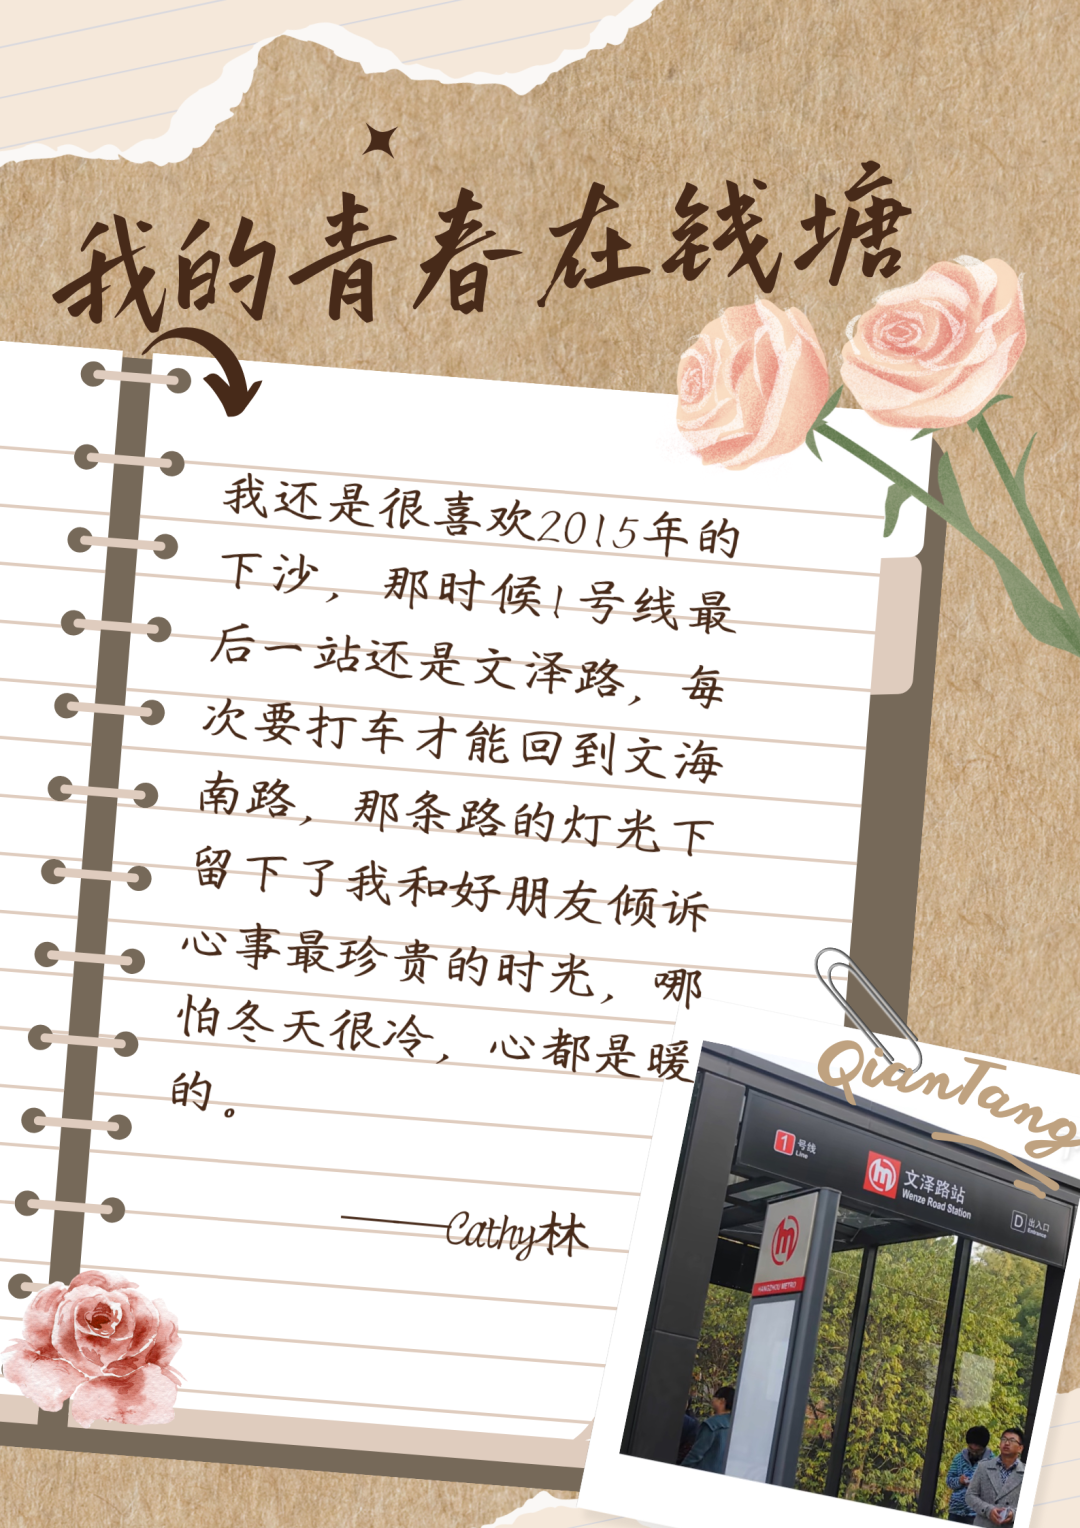 我的青春在钱塘
我还是很喜欢2015年的
下沙，那时候1号线最
后一站还是文泽路，每
次要打车才能回到文海
南路，那条路的灯光下
留下了我和好朋友倾诉
心事最珍贵的时光，哪
怕冬天很冷，心都是暖
的。
——Cathy林
QianTang
1 号线
Line
文泽路站
Wenze Road Station
D 出入口
Entrance
HANGZHOU METRO